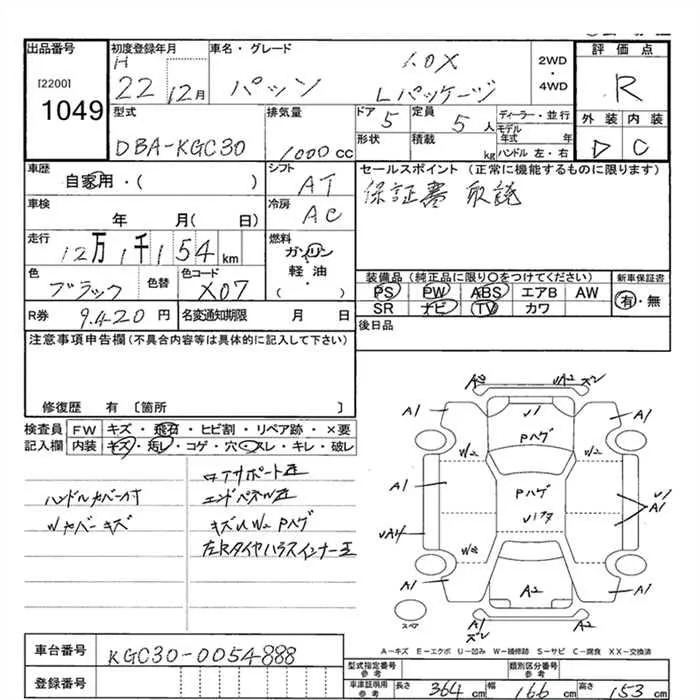 出品番号
[2200]
1049
初度登録年月
H
22 12月
車名・グレード
パッソ
1.0X
Lパッケージ
2WD
・
4WD
評価点
R
外装 内装
D C
型式
DBA-KGC30
排気量
1000 cc
ドア 5
定員 5 人
形状
積載 kg
ディーラー・並行
モデル年式 年
ハンドル 左・右
車歴
自家用・( )
シフト
AT
セールスポイント (正常に機能するものに限ります)
保証書 取説
車検
年 月( 日)
冷房
AC
走行
12万1千154 km
燃料
ガソリン
軽・油
( )
色
ブラック
色替
色コード
X07
装備品 (純正品に限り○をつけてください)
新車保証書
PS PW ABS エアB AW
SR ナビ TV カワ
有・無
R券 9,420 円
名変通知期限 月 日
後日品
注意事項申告欄(不具合内容等は具体的に記入して下さい)
修復歴 有 〔箇所 〕
検査員
記入欄
FW キズ・飛石・ヒビ割・リペア跡・×要
内装 キズ・汚レ・コゲ・穴・スレ・キレ・破レ
ハンドルカバー付
Wカバーキズ
コアサポート歪
エンドパネル歪
キズU W2 Pハゲ
左Rタイヤハウスインナー歪
A2 UA2 ズレ
A1 U1 A1
Pハゲ
W2 W2
A1 Pハゲ U1
A1
UA4
W2
A1 A2 A1
スペア
A1 A1
ズレ
A-キズ E-エクボ U-凹み W-補修跡 S-サビ C-腐食 XX-交換済
車台番号
KGC30-0054888
登録番号
型式指定番号
参考
類別区分番号
参考
車庫証明用
参考
長さ 364 cm
幅 166 cm
高さ 153 cm